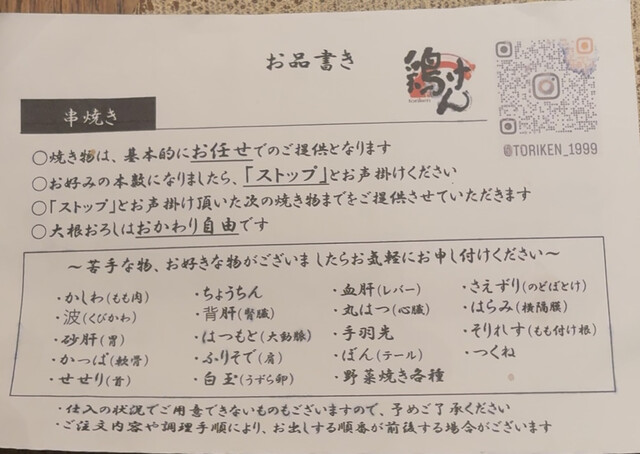 お品書き
鶏けん
TORIKEN_1999
串焼き
○焼き物は、基本的にお任せでのご提供となります
○お好みの本数になりましたら、「ストップ」とお声掛けください
○「ストップ」とお声掛け頂いた次の焼き物までをご提供させていただきます
○大根おろしはおかわり自由です
〜苦手な物、お好きな物がございましたらお気軽にお申し付けください〜
・かしわ(もも肉)
・波(くびかわ)
・砂肝(胃)
・かっぱ(軟骨)
・せせり(首)
・ちょうちん
・背肝(腎臓)
・はつもと(大動脈)
・ふりそで(肩)
・白玉(うずら卵)
・血肝(レバー)
・丸はつ(心臓)
・手羽先
・ぼん(テール)
・野菜焼き各種
・さえずり(のどぼとけ)
・はらみ(横隔膜)
・そりれす(もも付け根)
・つくね
・仕入の状況でご用意できないものもございますので、予めご了承ください
・ご注文内容や調理手順により、お出しする順番が前後する場合がございます